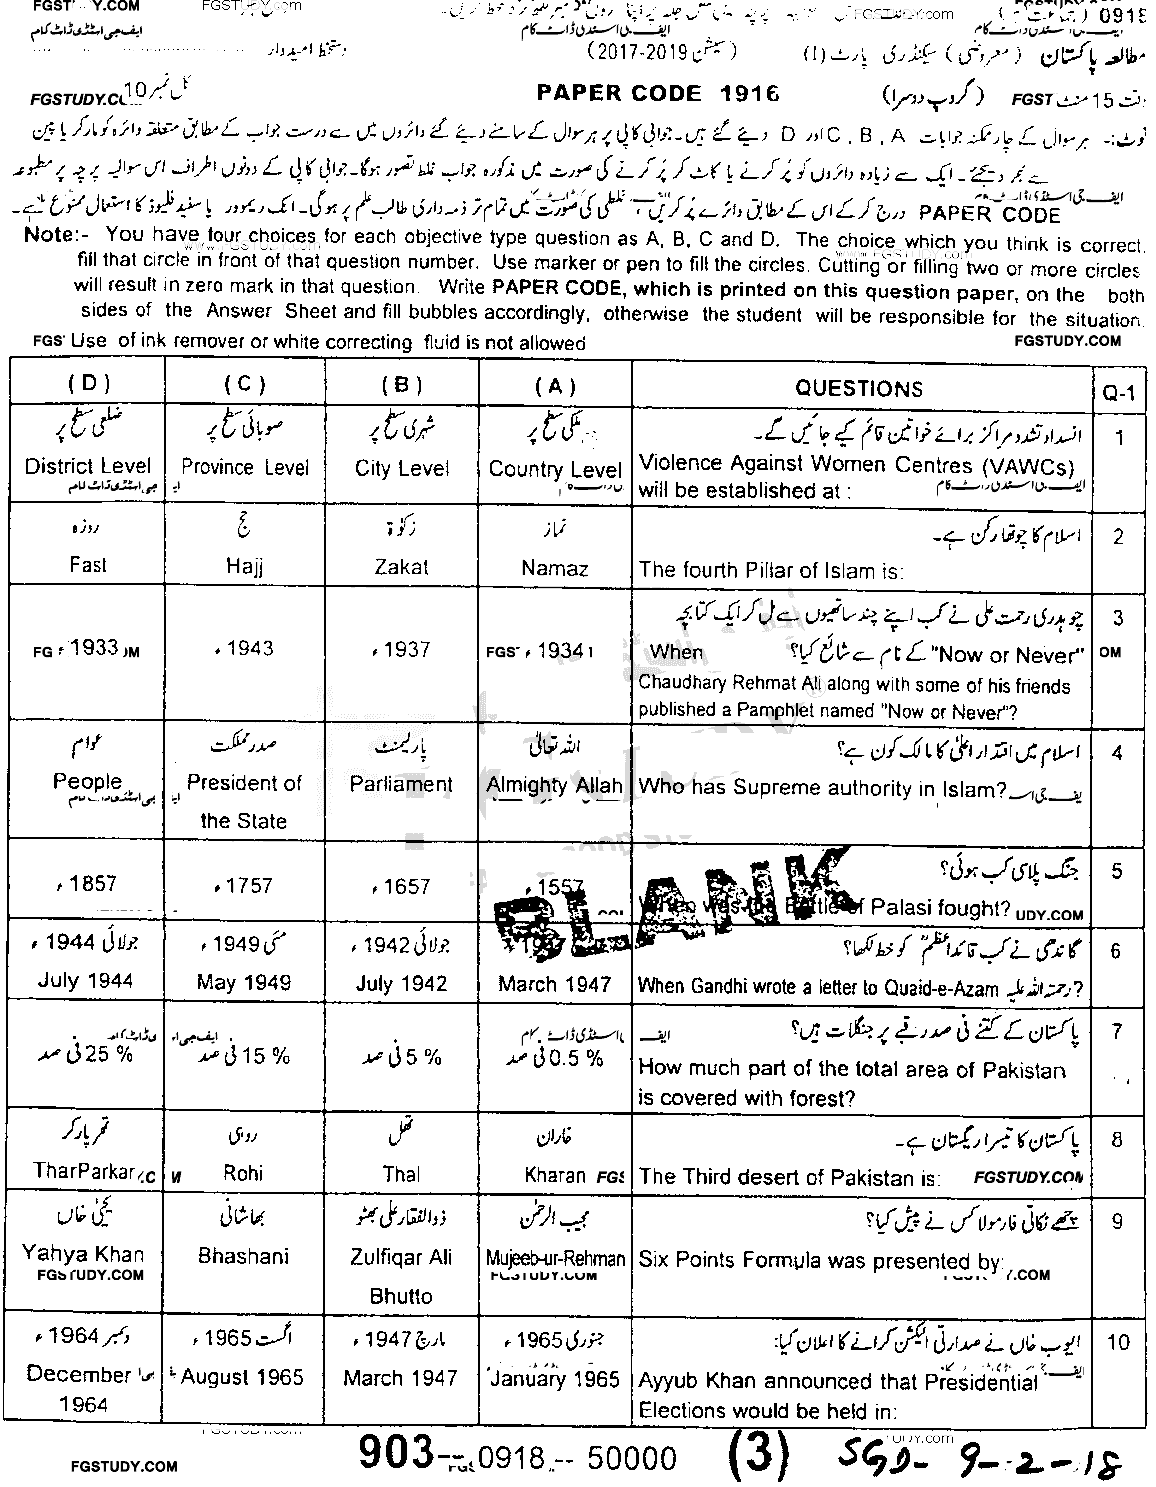 FGSTUDY.COM FGSTUDY.com FGSTUDY.com 0918
ایف جی اسٹڈی ڈاٹ کام ایف جی اسٹڈی ڈاٹ کام
مطالعہ پاکستان (معروضی) سیکنڈری پارٹ (I) (سیشن 2017-2019) دستخط امیدوار
وقت 15 منٹ FGST (گروپ دوسرا) PAPER CODE 1916 کل نمبر 10 FGSTUDY.CO
نوٹ:۔ ہر سوال کے چار ممکنہ جوابات C , B , A اور D دیئے گئے ہیں۔ جوابی کاپی پر ہر سوال کے سامنے دیئے گئے دائروں میں سے درست جواب کے مطابق متعلقہ دائرہ کو مارکر یا پین
سے بھر دیجئے۔ ایک سے زیادہ دائروں کو پُر کرنے یا کاٹ کر پُر کرنے کی صورت میں مذکورہ جواب غلط تصور ہوگا۔ جوابی کاپی کے دونوں اطراف اس سوالیہ پرچہ پر مطبوعہ
PAPER CODE درج کر کے اس کے مطابق دائرے پُر کریں، غلطی کی صورت میں تمام تر ذمہ داری طالب علم پر ہوگی۔ انک ریموور یا سفید فلیوڈ کا استعمال ممنوع ہے۔
Note:- You have four choices for each objective type question as A, B, C and D. The choice which you think is correct.
fill that circle in front of that question number. Use marker or pen to fill the circles. Cutting or filling two or more circles
will result in zero mark in that question. Write PAPER CODE, which is printed on this question paper, on the both
sides of the Answer Sheet and fill bubbles accordingly, otherwise the student will be responsible for the situation.
FGS Use of ink remover or white correcting fluid is not allowed FGSTUDY.COM
(D) (C) (B) (A) QUESTIONS Q-1
ضلعی سطح پر صوبائی سطح پر شہری سطح پر ملکی سطح پر انسداد تشدد مراکز برائے خواتین قائم کیے جائیں گے۔ 1
District Level Province Level City Level Country Level Violence Against Women Centres (VAWCs)
will be established at : ایف جی اسٹڈی ڈاٹ کام
روزہ حج زکوٰۃ نماز اسلام کا چوتھا رکن ہے۔ 2
Fast Hajj Zakat Namaz The fourth Pillar of Islam is:
چوہدری رحمت علی نے کب اپنے چند ساتھیوں سے مل کر ایک کتابچہ 3
1933ء 1943ء 1937ء 1934ء When "Now or Never" کے نام سے شائع کیا؟
Chaudhary Rehmat Ali along with some of his friends
published a Pamphlet named "Now or Never"?
عوام صدر مملکت پارلیمنٹ اللہ تعالیٰ اسلام میں اقتدار اعلیٰ کا مالک کون ہے؟ 4
People President of Parliament Almighty Allah Who has Supreme authority in Islam?
the State
جنگ پلاسی کب ہوئی؟ 5
1857ء 1757ء 1657ء 1557ء
When was the Battle of Palasi fought? UDY.COM
BLANK
جولائی 1944ء مئی 1949ء جولائی 1942ء گاندھی نے کب قائداعظمؒ کو خط لکھا؟ 6
July 1944 May 1949 July 1942 March 1947 When Gandhi wrote a letter to Quaid-e-Azam رحمتہ اللہ علیہ?
پاکستان کے کتنے فی صد رقبے پر جنگلات ہیں؟ 7
25 % فی صد 15 % فی صد 5 % فی صد 0.5 % فی صد How much part of the total area of Pakistan
is covered with forest?
تھرپارکر روہی تھل خاران پاکستان کا تیسرا ریگستان ہے۔ 8
TharParkar Rohi Thal Kharan FGS The Third desert of Pakistan is: FGSTUDY.COM
یحییٰ خاں بھاشانی ذوالفقار علی بھٹو مجیب الرحمٰن چھے نکاتی فارمولا کس نے پیش کیا؟ 9
Yahya Khan Bhashani Zulfiqar Ali Mujeeb-ur-Rehman Six Points Formula was presented by:
FGSTUDY.COM FGSTUDY.COM
Bhutto
دسمبر 1964ء اگست 1965ء مارچ 1947ء جنوری 1965ء ایوب خاں نے صدارتی الیکشن کرانے کا اعلان کیا: 10
December August 1965 March 1947 January 1965 Ayyub Khan announced that Presidential
1964 Elections would be held in:
FGSTUDY.COM 903-- 0918 -- 50000 (3) SGD- 9-2-18